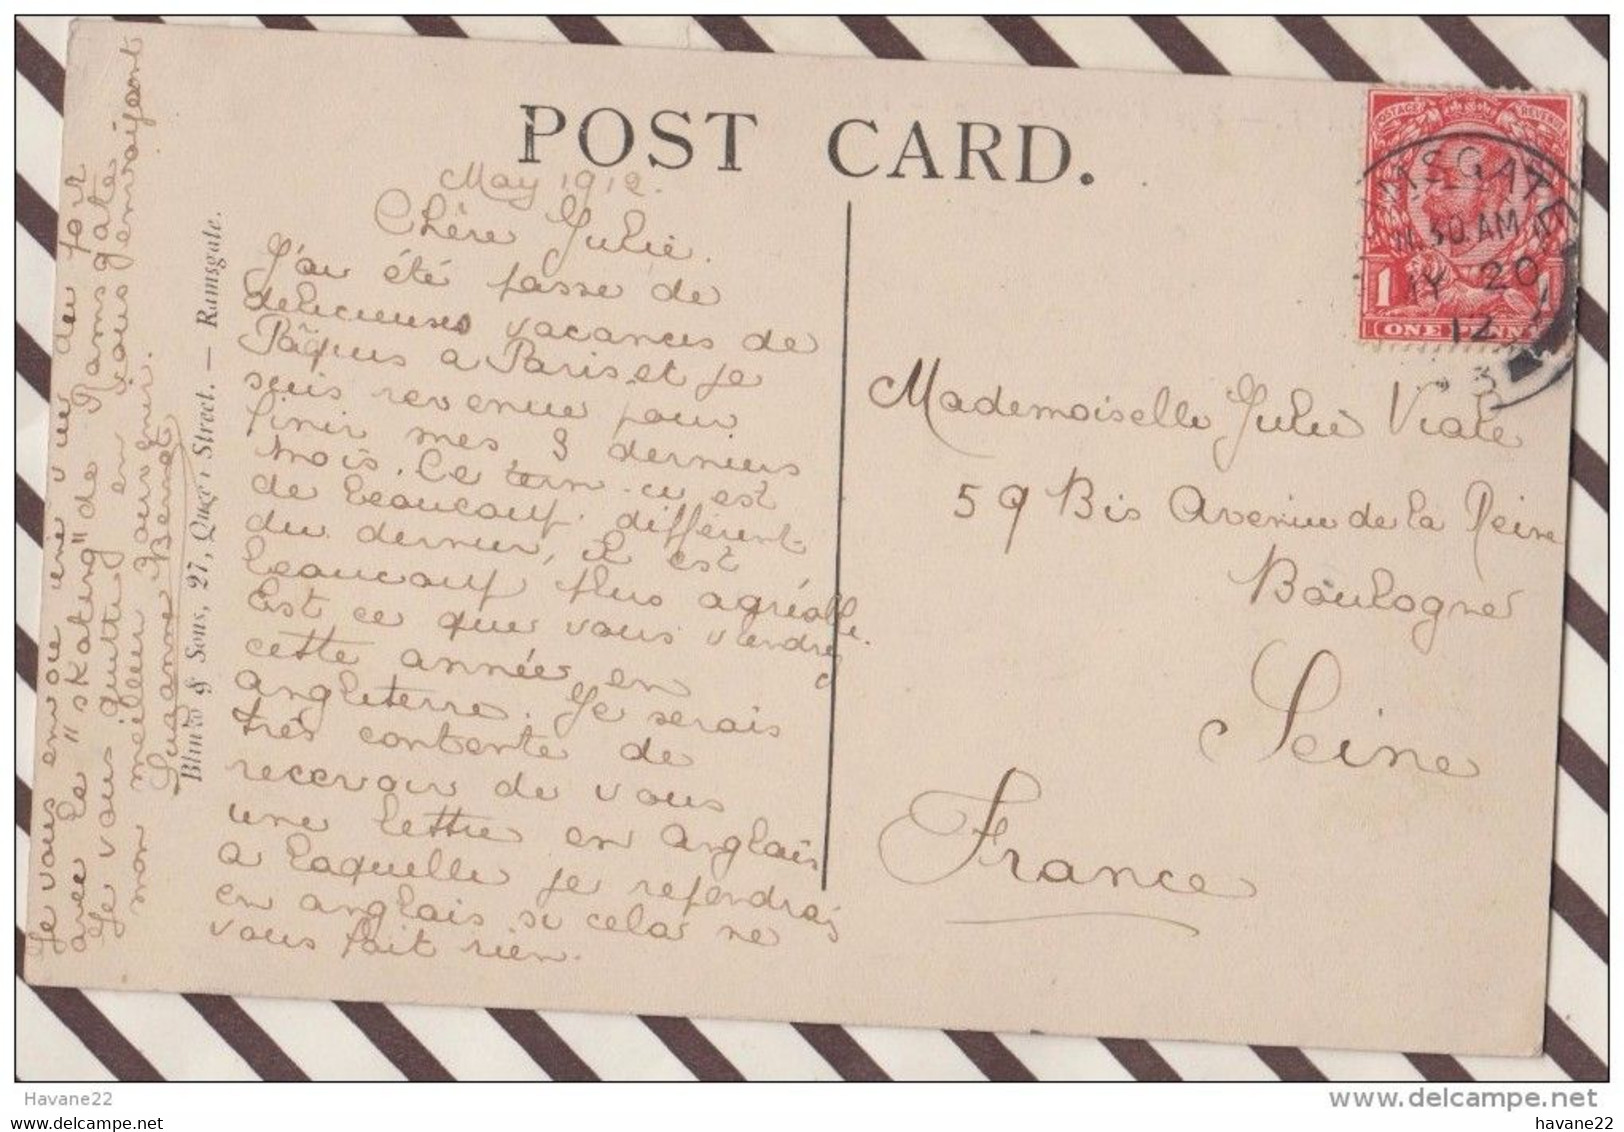 POST CARD.
May 1912.
Chère Julie.
J'ai été passe de
delicieuses vacances de
Pâques a Paris et je
suis revenue pour
finir mes 3 derniers
mois. Ce term-ci est
de beaucoup different
du dernier, il est
beaucoup plus agréable.
Est ce que vous viendrez
cette année en
angleterre. Je serais
très contente de
recevoir de vous
une lettre en anglais
a laquelle je rependrais
en anglais si cela ne
vous fait rien.
Je vous envoie une vue du port
avec le "skating" de Ramsgate
Je vous quitte en vous envoyant
mon meilleur souvenir.
Suzanne
Blinko & Sons, 27, Queen Street. — Ramsgate.
POSTAGE REVENUE
1 1
ONE PENNY
RAMSGATE
11.30 AM
MY 20
12
3
Mademoiselle Julie Viale
59 Bis Avenue de la Reine
Boulogne
Seine
France
Havane22
www.delcampe.net
Havane22
havane22